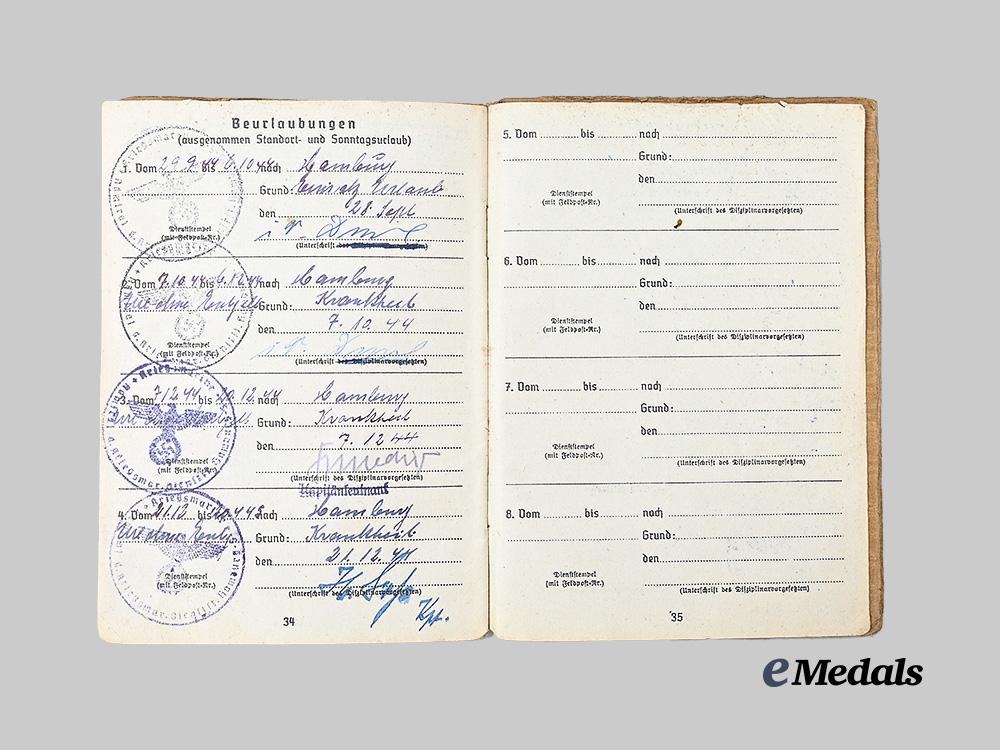 Beurlaubungen
(ausgenommen Standort- und Sonntagsurlaub)
1. Vom 29.9.44 bis 6.10.44 nach Hamburg
Grund: Urlaub
den 28. Sept
i.V.
Dienststempel
(mit Feldpost-Nr.)
(Unterschrift des Disziplinarvorgesetzten)
2. Vom 7.10.44 bis 6.12.44 nach Hamburg
Grund: Krankheit
den 7.10.44
i.V.
Dienststempel
(mit Feldpost-Nr.)
(Unterschrift des Disziplinarvorgesetzten)
3. Vom 7.12.44 bis 20.12.44 nach Hamburg
Grund: Krankheit
den 7.12 44
Dienststempel
(mit Feldpost-Nr.)
(Unterschrift des Disziplinarvorgesetzten)
Kapitänleutnant
4. Vom 21.12. bis nach Hamburg
Grund: Krankheit
den 21.12.44
Dienststempel
(mit Feldpost-Nr.)
(Unterschrift des Disziplinarvorgesetzten)
34
5. Vom bis nach
Grund:
den
Dienststempel
(mit Feldpost-Nr.)
(Unterschrift des Disziplinarvorgesetzten)
6. Vom bis nach
Grund:
den
Dienststempel
(mit Feldpost-Nr.)
(Unterschrift des Disziplinarvorgesetzten)
7. Vom bis nach
Grund:
den
Dienststempel
(mit Feldpost-Nr.)
(Unterschrift des Disziplinarvorgesetzten)
8. Vom bis nach
Grund:
den
Dienststempel
(mit Feldpost-Nr.)
(Unterschrift des Disziplinarvorgesetzten)
35
eMedals